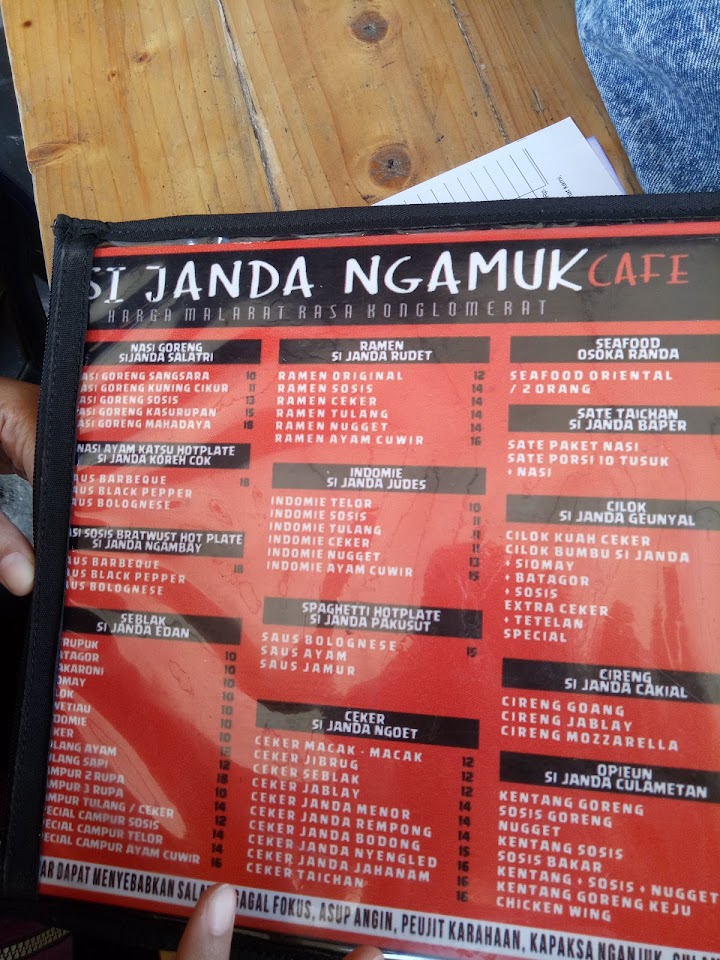 SI JANDA NGAMUK CAFE
HARGA MALARAT RASA KONGLOMERAT
NASI GORENG
SI JANDA SALATRI
NASI GORENG SANGSARA 10
NASI GORENG KUNING CIKUR 11
NASI GORENG SOSIS 13
NASI GORENG KASURUPAN 15
NASI GORENG MAHADAYA 18
NASI AYAM KATSU HOTPLATE
SI JANDA KOREH COK
AUS BARBEQUE 18
AUS BLACK PEPPER
AUS BOLOGNESE
ASI SOSIS BRATWUST HOT PLATE
SI JANDA NGAMBAY
AUS BARBEQUE 18
AUS BLACK PEPPER
AUS BOLOGNESE
SEBLAK
SI JANDA EDAN
RUPUK 10
ATAGOR 10
AKARONI 10
OMAY 10
LOK 10
VETIAU 10
DOMIE 10
KER 12
LANG AYAM 12
LANG SAPI 18
AMPUR 2 RUPA 10
AMPUR 3 RUPA 14
AMPUR TULANG / CEKER 12
PECIAL CAMPUR SOSIS 14
PECIAL CAMPUR TELOR 14
PECIAL CAMPUR AYAM CUWIR 16
RAMEN
SI JANDA RUDET
RAMEN ORIGINAL 12
RAMEN SOSIS 14
RAMEN CEKER 14
RAMEN TULANG 14
RAMEN NUGGET 14
RAMEN AYAM CUWIR 16
INDOMIE
SI JANDA JUDES
INDOMIE TELOR 10
INDOMIE SOSIS 11
INDOMIE TULANG
INDOMIE CEKER 11
INDOMIE NUGGET 13
INDOMIE AYAM CUWIR 15
SPAGHETTI HOTPLATE
SI JANDA PAKUSUT
SAUS BOLOGNESE 15
SAUS AYAM
SAUS JAMUR
CEKER
SI JANDA NGOET
CEKER MACAK - MACAK 12
CEKER JIBRUG 12
CEKER SEBLAK 12
CEKER JABLAY 14
CEKER JANDA MENOR 14
CEKER JANDA REMPONG 14
CEKER JANDA BODONG 14
CEKER JANDA NYENGLED 16
CEKER JANDA JAHANAM 16
CEKER TAICHAN 16
SEAFOOD
OSOKA RANDA
SEAFOOD ORIENTAL
/ 2 ORANG
SATE TAICHAN
SI JANDA BAPER
SATE PAKET NASI
SATE PORSI 10 TUSUK
+ NASI
CILOK
SI JANDA GEUNYAL
CILOK KUAH CEKER
CILOK BUMBU SI JANDA
+ SIOMAY
+ BATAGOR
+ SOSIS
EXTRA CEKER
+ TETELAN
SPECIAL
CIRENG
SI JANDA CAKIAL
CIRENG GOANG
CIRENG JABLAY
CIRENG MOZZARELLA
OPIEUN
SI JANDA CULAMETAN
KENTANG GORENG
SOSIS GORENG
NUGGET
KENTANG SOSIS
SOSIS BAKAR
KENTANG + SOSIS + NUGGET
KENTANG GORENG KEJU
CHICKEN WING
AR DAPAT MENYEBABKAN GAGAL FOKUS, ASUP ANGIN, PEUJIT KARAHAAN, KAPAKSA NGANJUK,